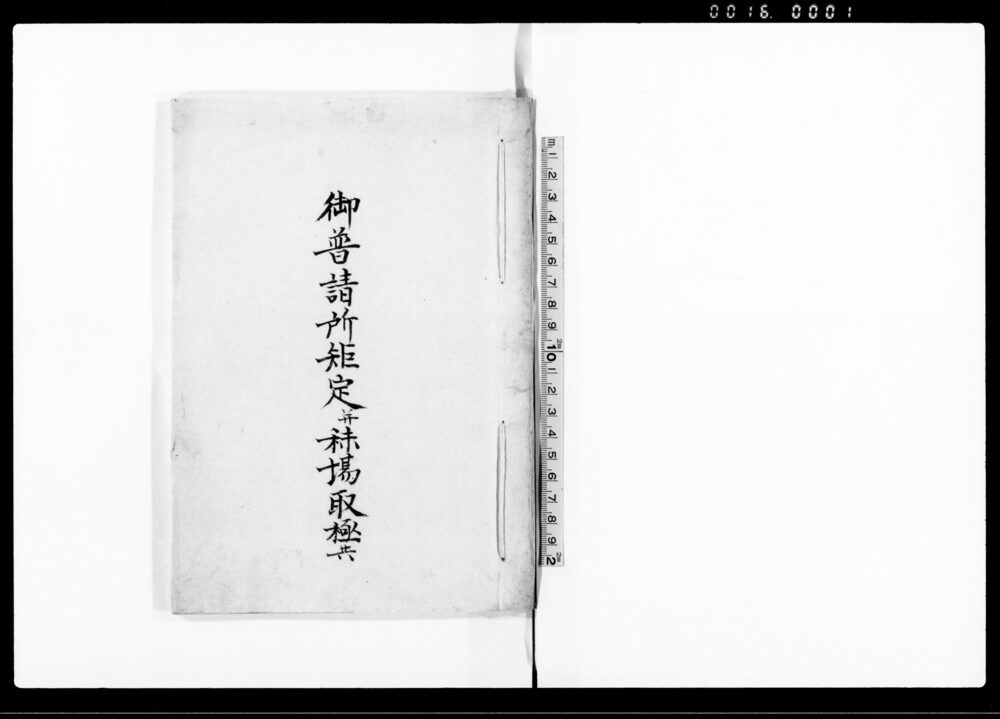 0016. 0001
御普請所矩定并秣場取極共
m 1 2 3 4 5 6 7 8 9 10 1 2 3 4 5 6 7 8 9 2